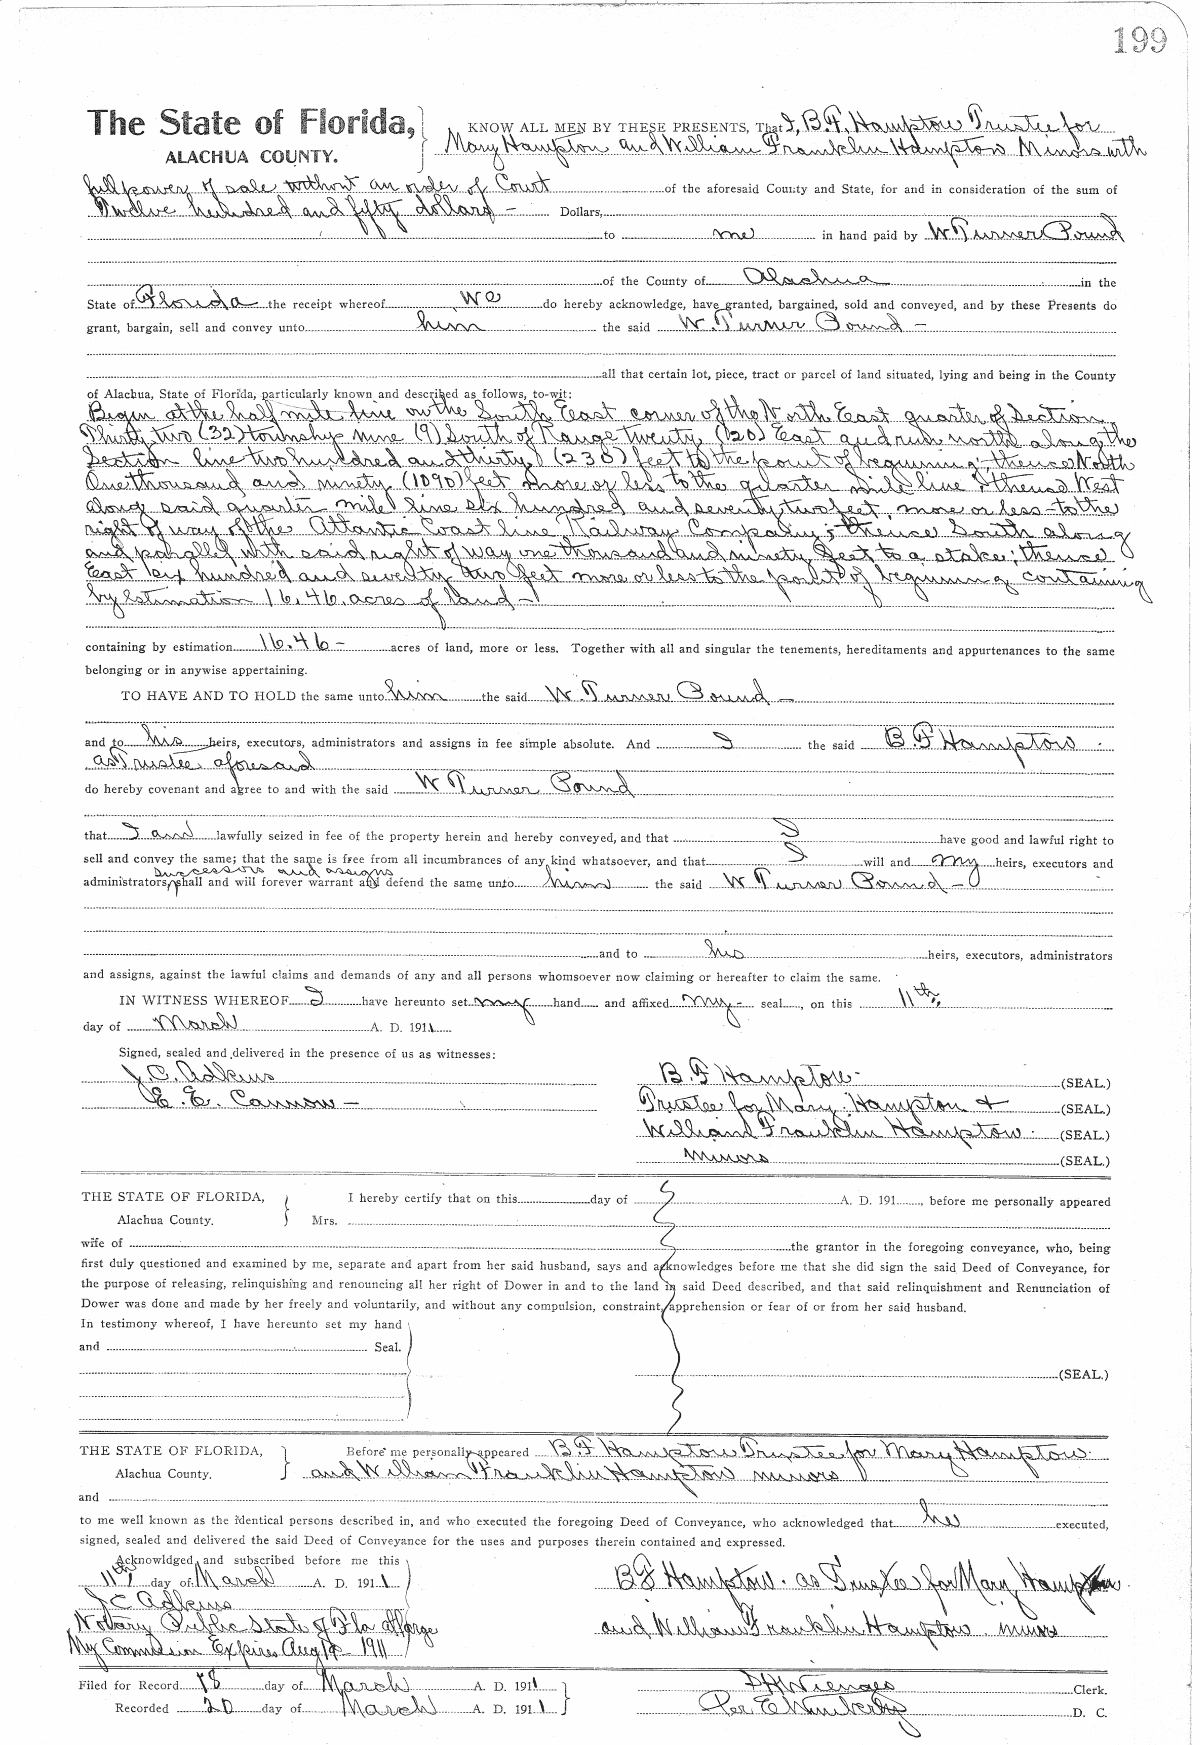 199
The State of Florida, KNOW ALL MEN BY THESE PRESENTS, That I, B.F. Hampton Trustee for
ALACHUA COUNTY. Mary Hampton and William Franklin Hampton Minors with
full power of sale without an order of Court of the aforesaid County and State, for and in consideration of the sum of
Twelve hundred and fifty dollars – Dollars,
to me in hand paid by W Turner Pound
of the County of Alachua in the
State of Florida the receipt whereof we do hereby acknowledge, have granted, bargained, sold and conveyed, and by these Presents do
grant, bargain, sell and convey unto him the said W. Turner Pound –
all that certain lot, piece, tract or parcel of land situated, lying and being in the County
of Alachua, State of Florida, particularly known and described as follows, to-wit:
Begin at the half mile line on the South East corner of the North East quarter of Section
Thirty two (32) township nine (9) South of Range twenty (20) East and run north along the
Section line two hundred and thirty (230) feet to the point of beginning; thence North
One thousand and ninety (1090) feet more or less to the quarter mile line; thence West
along said quarter mile line six hundred and seventy two feet, more or less to the
right of way of the Atlantic Coast line Railway Company; thence South along
and parallel with said right of way one thousand and ninety feet to a stake; thence
East six hundred and seventy two feet more or less to the point of beginning containing
by estimation 16.46 acres of land –
containing by estimation 16.46 – acres of land, more or less. Together with all and singular the tenements, hereditaments and appurtenances to the same
belonging or in anywise appertaining.
TO HAVE AND TO HOLD the same unto him the said W Turner Pound –
and to his heirs, executors, administrators and assigns in fee simple absolute. And I the said B F Hampton
as Trustee aforesaid
do hereby covenant and agree to and with the said W Turner Pound
that I am lawfully seized in fee of the property herein and hereby conveyed, and that I have good and lawful right to
sell and convey the same; that the same is free from all incumbrances of any kind whatsoever, and that I will and my heirs, executors and
successors and assigns
administrators, shall and will forever warrant and defend the same unto him the said W Turner Pound –
and to his heirs, executors, administrators
and assigns, against the lawful claims and demands of any and all persons whomsoever now claiming or hereafter to claim the same.
IN WITNESS WHEREOF I have hereunto set my hand and affixed my – seal, on this 11th
day of March A. D. 1911
Signed, sealed and delivered in the presence of us as witnesses:
J.C. Adkins B. F Hampton (SEAL.)
E. E. Cannon – Trustee for Mary Hampton & (SEAL.)
William Franklin Hampton (SEAL.)
minors (SEAL.)
THE STATE OF FLORIDA, I hereby certify that on this day of A. D. 191 , before me personally appeared
Alachua County. Mrs.
wife of the grantor in the foregoing conveyance, who, being
first duly questioned and examined by me, separate and apart from her said husband, says and acknowledges before me that she did sign the said Deed of Conveyance, for
the purpose of releasing, relinquishing and renouncing all her right of Dower in and to the land in said Deed described, and that said relinquishment and Renunciation of
Dower was done and made by her freely and voluntarily, and without any compulsion, constraint, apprehension or fear of or from her said husband.
In testimony whereof, I have hereunto set my hand
and Seal.
(SEAL.)
THE STATE OF FLORIDA, Before me personally appeared B F Hampton Trustee for Mary Hampton
Alachua County. and William Franklin Hampton minors
and
to me well known as the identical persons described in, and who executed the foregoing Deed of Conveyance, who acknowledged that he executed,
signed, sealed and delivered the said Deed of Conveyance for the uses and purposes therein contained and expressed.
Acknowldged and subscribed before me this
11th day of March A. D. 1911 B F Hampton. as Trustee for Mary Hampton
J C Adkins
Notary Public State of Fla at large and William Franklin Hampton minors
My Commission Expires Aug 1911
Filed for Record 18 day of March A. D. 1911 Clerk.
Recorded 20 day of March A. D. 1911 Per E Wimberly D. C.